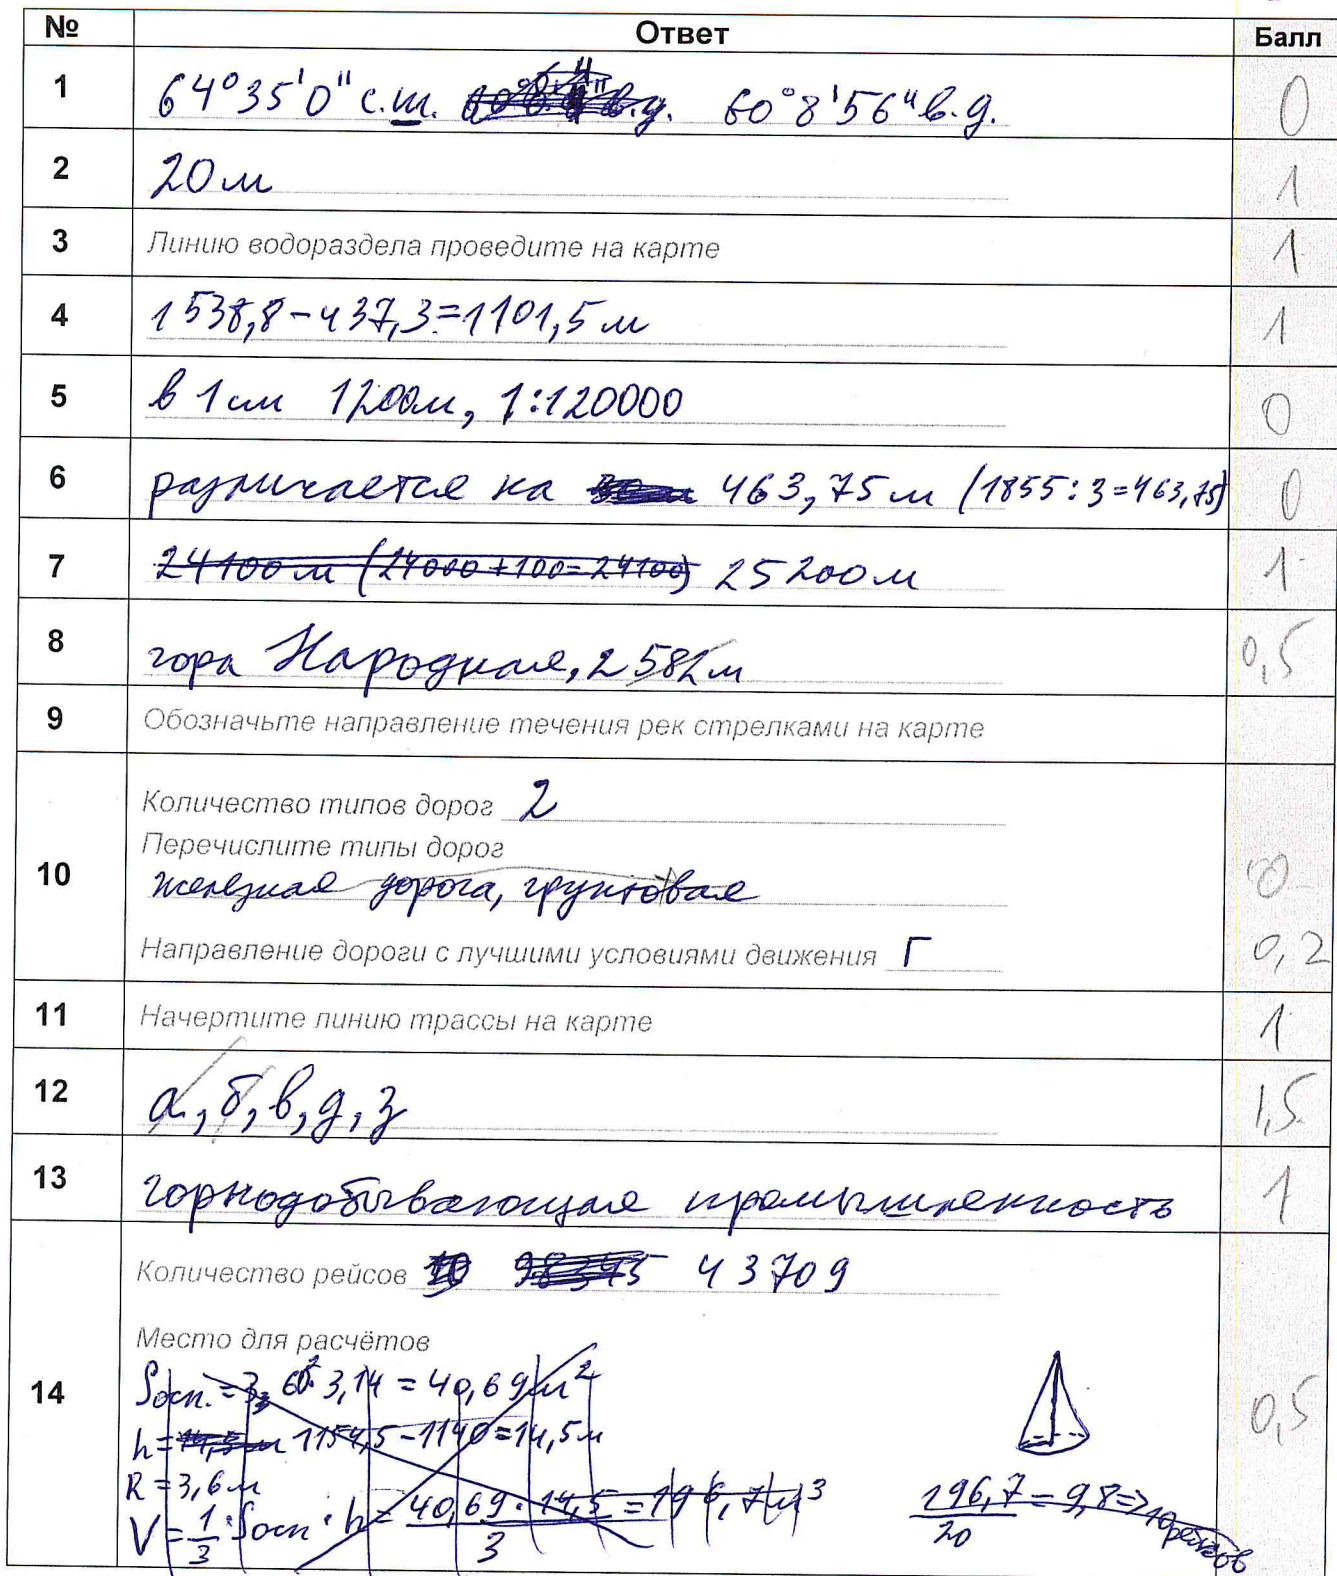 № Ответ Балл
1 64°35'0" с.ш. 60°8'56" в.д. 0
2 20 м 1
3 Линию водораздела проведите на карте 1
4 1538,8-437,3=1101,5 м 1
5 в 1 см 1200м, 1:120000 0
6 различается на 463,75 м (1855:3=463,75) 0
7 24100 м (24000+100=24100) 25200 м 1
8 гора Народная, 2582 м 0,5
9 Обозначьте направление течения рек стрелками на карте
10
Количество типов дорог 2
Перечислите типы дорог
железная дорога, грунтовая 0
Направление дороги с лучшими условиями движения Г 0,2
11 Начертите линию трассы на карте 1
12 а, б, в, д, з 1,5
13 горнодобывающая промышленность 1
14
Количество рейсов 43709
Место для расчётов
Sосн. = 3,6²·3,14 = 40,69 м²
h = 1154,5-1140=14,5м 0,5
R = 3,6 м
V = 1/3 · Sосн · h = 40,69·14,5/3 = 196,7 м³ 196,7/20 = 9,8 => 10 рейсов